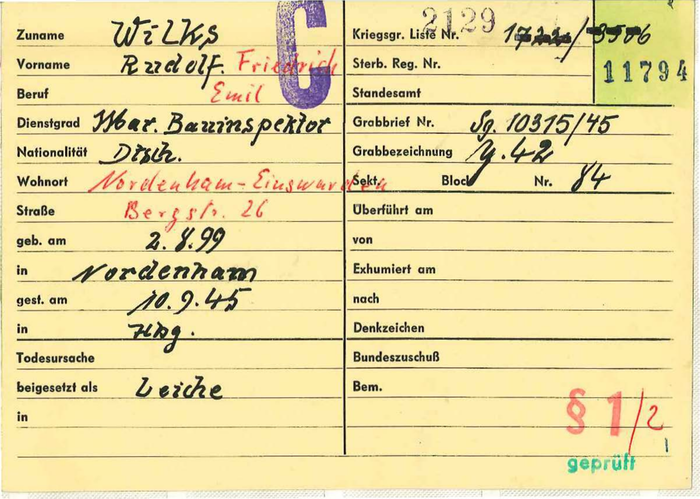 Zuname Wilks
Vorname Rudolf. Friedrich
Beruf Emil
Dienstgrad Mar. Bauinspektor
Nationalität Dtsch.
Wohnort Nordenham-Einswarden
Straße Bergstr. 26
geb. am 2.8.99
in Nordenham
gest. am 10.9.45
in Hbg.
Todesursache
beigesetzt als Leiche
in
C
2129
Kriegsgr. Liste Nr.
Sterb. Reg. Nr.
11794
Standesamt
Grabbrief Nr. Sg. 10315/45
Grabbezeichnung y. 42
Sekt. Block Nr. 84
Überführt am
von
Exhumiert am
nach
Denkzeichen
Bundeszuschuß
Bem.
§ 1/2
1
geprüft